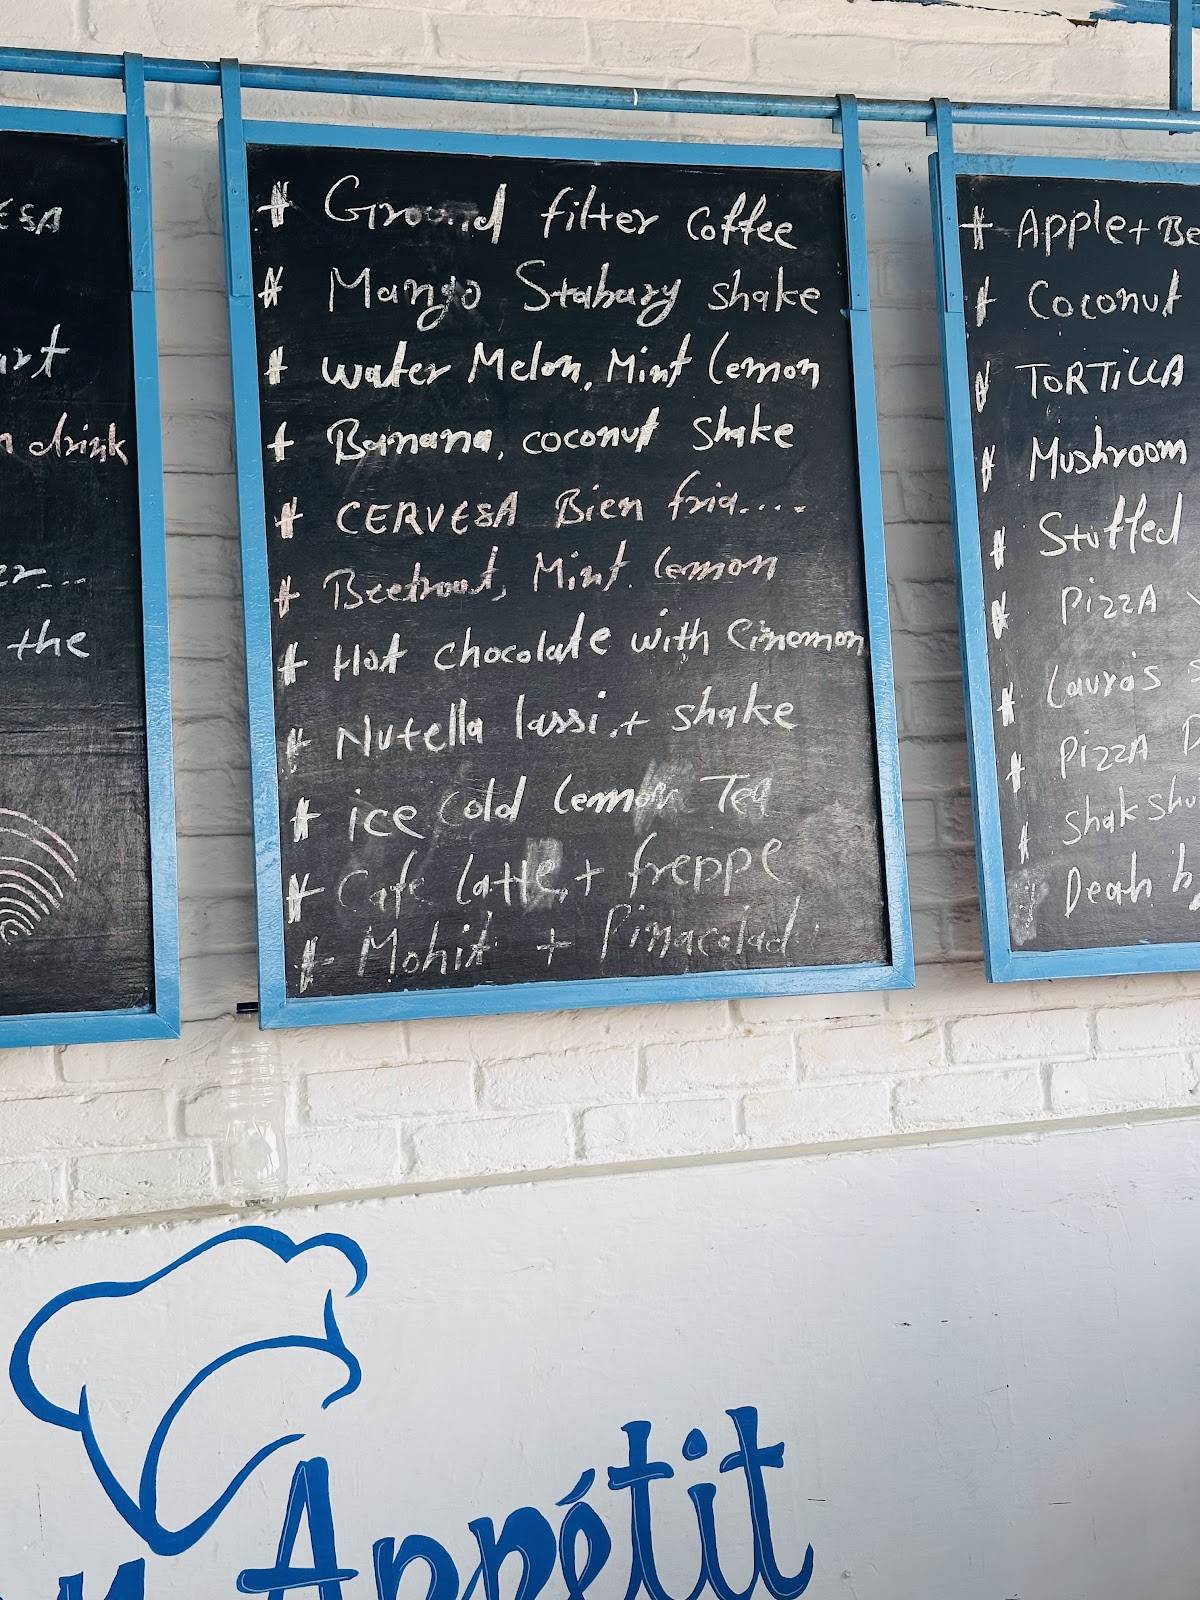 ESA
art
n drink
er...
the
# Ground filter coffee
# Mango Stabury shake
# water Melon, Mint lemon
# Banana, coconut shake
# CERVESA Bien fria....
# Beetroot, Mint. lemon
# Hot chocolate with Cinemon
# Nutella lassi, + shake
# ice cold lemon Tea
# Cafe latte, + freppe
# Mohit + Pinacolad
# Apple + Be
# Coconut
# TORTILLA
# Mushroom
# Stuffed
# PIZZA
# Laura's S
# PIZZA D
# Shakshu
Death b
n Appétit